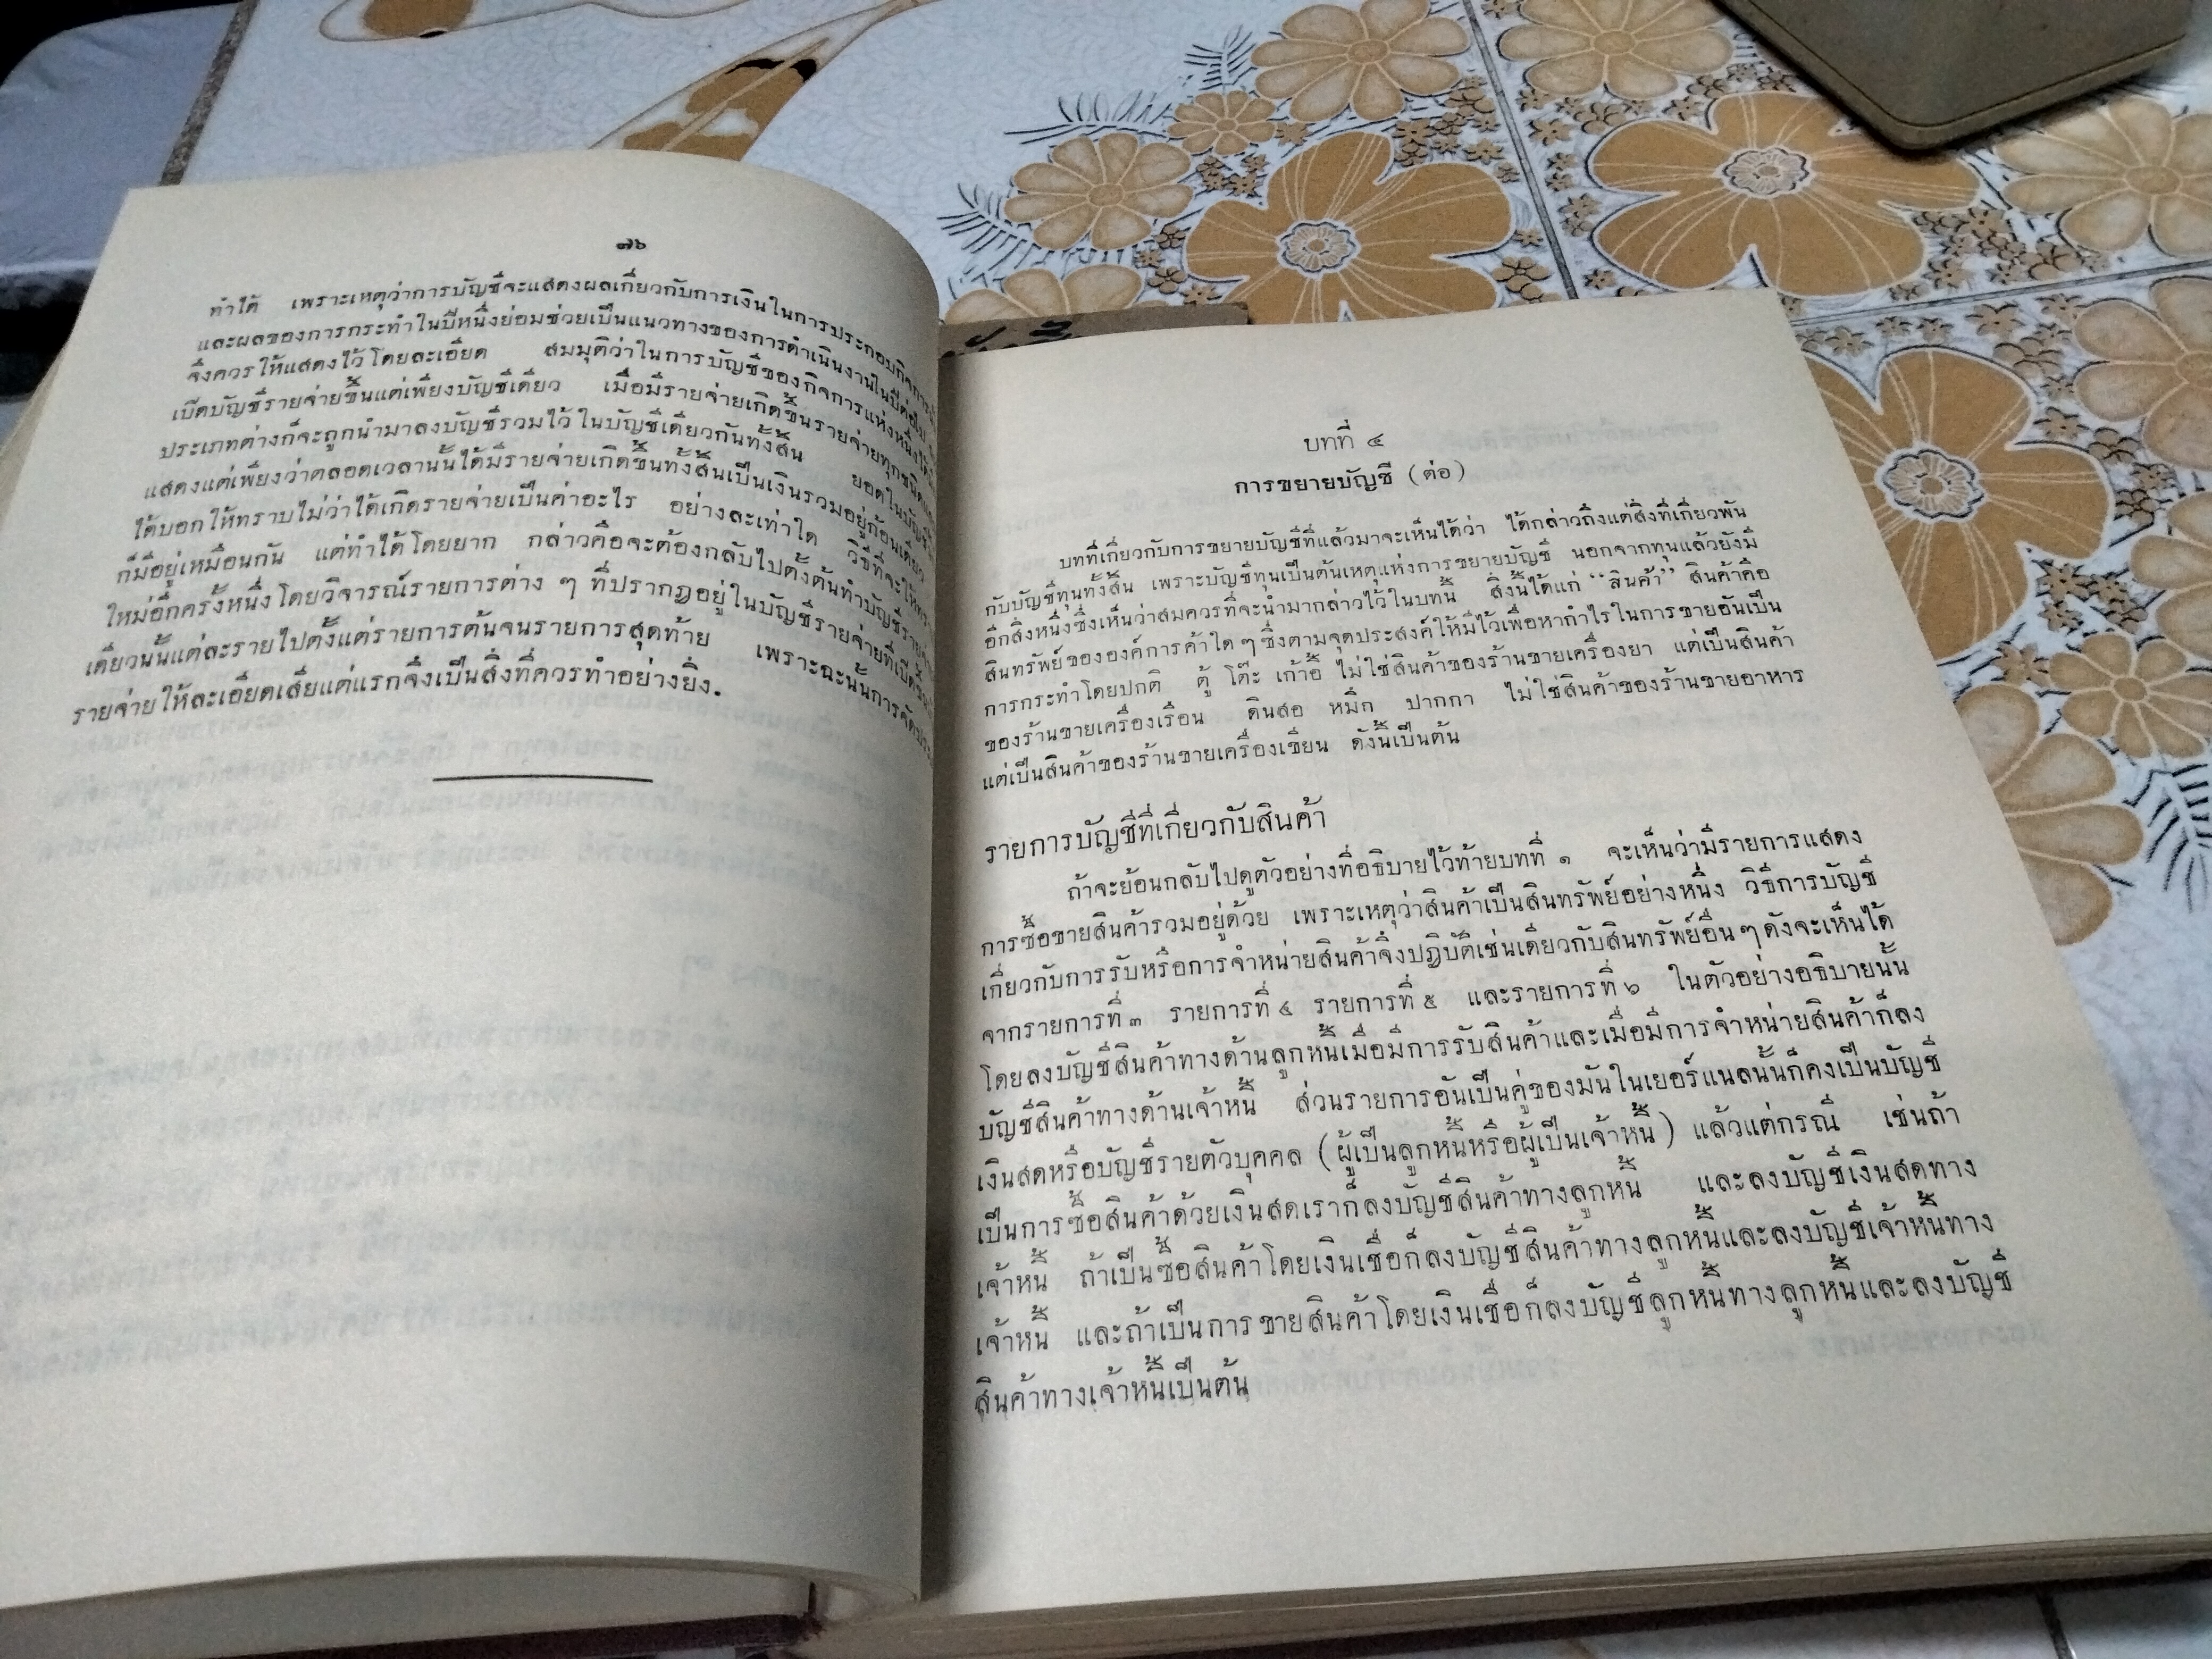 ๗๖
ทำได้ เพราะเหตุว่าการบัญชีจะแสดงผลเกี่ยวกับการเงินในการประกอบกิจการ
และผลของการกระทำในปีหนึ่งย่อมช่วยเป็นแนวทางของการดำเนินงานในปีต่อไป
จึงควรให้แสดงไว้โดยละเอียด สมมุติว่าในการบัญชีของกิจการแห่งหนึ่งได้
เปิดบัญชีรายจ่ายขึ้นแต่เพียงบัญชีเดียว เมื่อมีรายจ่ายเกิดขึ้นรายจ่ายทุกชนิด
ประเภทต่างก็จะถูกนำมาลงบัญชีรวมไว้ในบัญชีเดียวกันทั้งสิ้น ยอดในบัญชี
แสดงแต่เพียงว่าตลอดเวลานั้นได้มีรายจ่ายเกิดขึ้นทั้งสิ้นเป็นเงินรวมอยู่ก้อนเดียว
ได้บอกให้ทราบไม่ว่าได้เกิดรายจ่ายเป็นค่าอะไร อย่างละเท่าใด วิธีที่จะให้
ก็มีอยู่เหมือนกัน แต่ทำได้โดยยาก กล่าวคือจะต้องกลับไปตั้งต้นทำบัญชี
ใหม่อีกครั้งหนึ่งโดยวิจารณ์รายการต่าง ๆ ที่ปรากฏอยู่ในบัญชีรายจ่ายที่เปิดขึ้น
เดียวนั้นแต่ละรายไปตั้งแต่รายการต้นจนรายการสุดท้าย เพราะฉะนั้นการจัด
รายจ่ายให้ละเอียดเสียแต่แรกจึงเป็นสิ่งที่ควรทำอย่างยิ่ง.
บทที่ ๔
การขยายบัญชี (ต่อ)
บทที่เกี่ยวกับการขยายบัญชีที่แล้วมาจะเห็นได้ว่า ได้กล่าวถึงแต่สิ่งที่เกี่ยวพัน
กับบัญชีทุนทั้งสิ้น เพราะบัญชีทุนเป็นต้นเหตุแห่งการขยายบัญชี นอกจากทุนแล้วยังมี
อีกสิ่งหนึ่งซึ่งเห็นว่าสมควรที่จะนำมากล่าวไว้ในบทนี้ สิ่งนี้ได้แก่ “สินค้า” สินค้าคือ
สินทรัพย์ขององค์การค้าใด ๆ ซึ่งตามจุดประสงค์ให้มีไว้เพื่อหากำไรในการขายอันเป็น
การกระทำโดยปกติ ตู้ โต๊ะ เก้าอี้ ไม่ใช่สินค้าของร้านขายเครื่องยา แต่เป็นสินค้า
ของร้านขายเครื่องเรือน ดินสอ หมึก ปากกา ไม่ใช่สินค้าของร้านขายอาหาร
แต่เป็นสินค้าของร้านขายเครื่องเขียน ดังนี้เป็นต้น
รายการบัญชีที่เกี่ยวกับสินค้า
ถ้าจะย้อนกลับไปดูตัวอย่างที่อธิบายไว้ท้ายบทที่ ๑ จะเห็นว่ามีรายการแสดง
การซื้อขายสินค้ารวมอยู่ด้วย เพราะเหตุว่าสินค้าเป็นสินทรัพย์อย่างหนึ่ง วิธีการบัญชี
เกี่ยวกับการรับหรือการจำหน่ายสินค้าจึงปฏิบัติเช่นเดียวกับสินทรัพย์อื่น ๆ ดังจะเห็นได้
จากรายการที่ ๓ รายการที่ ๔ รายการที่ ๕ และรายการที่ ๖ ในตัวอย่างอธิบายนั้น
โดยลงบัญชีสินค้าทางด้านลูกหนี้เมื่อมีการรับสินค้าและเมื่อมีการจำหน่ายสินค้าก็ลง
บัญชีสินค้าทางด้านเจ้าหนี้ ส่วนรายการอันเป็นคู่ของมันในเยอร์แนลนั้นก็คงเป็นบัญชี
เงินสดหรือบัญชีรายตัวบุคคล (ผู้เป็นลูกหนี้หรือผู้เป็นเจ้าหนี้) แล้วแต่กรณี เช่นถ้า
เป็นการซื้อสินค้าด้วยเงินสดเราก็ลงบัญชีสินค้าทางลูกหนี้ และลงบัญชีเงินสดทาง
เจ้าหนี้ ถ้าเป็นซื้อสินค้าโดยเงินเชื่อก็ลงบัญชีสินค้าทางลูกหนี้และลงบัญชีเจ้าหนี้ทาง
เจ้าหนี้ และถ้าเป็นการขายสินค้าโดยเงินเชื่อก็ลงบัญชีลูกหนี้ทางลูกหนี้และลงบัญชี
สินค้าทางเจ้าหนี้เป็นต้น